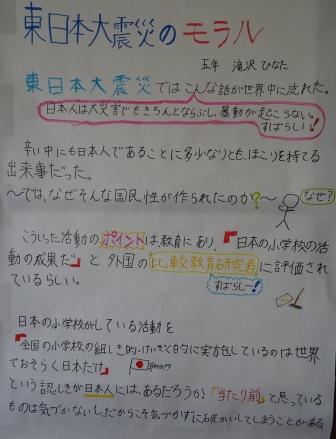 東日本大震災のモラル
五年 滝沢 ひなた
東日本大震災ではこんな話が世界中に流れた。
日本人は大災害でもきちんとならぶし、暴動が起こらない。
すばらしい!
辛い中にも日本人であることに多少なりとも、ほこりを持てる
出来事だった。
〜では、なぜそんな国民性が作られたのか?〜
なぜ?
こういった活動のポイントは教育にあり、「日本の小学校の活
動の成果だ」と外国の比較教育研究者に評価さ
れているらしい。
すばらしー!
日本の小学校がしている活動を
「全国の小学校の組しき的・けいかく的に実方色しているのは世界
でおそらく日本だけ」
という認しきが日本人には、あるだろうか?「当たり前」と思っている
ものは気づかないし、だからこそ気づかずに破かいしてしまうことがある